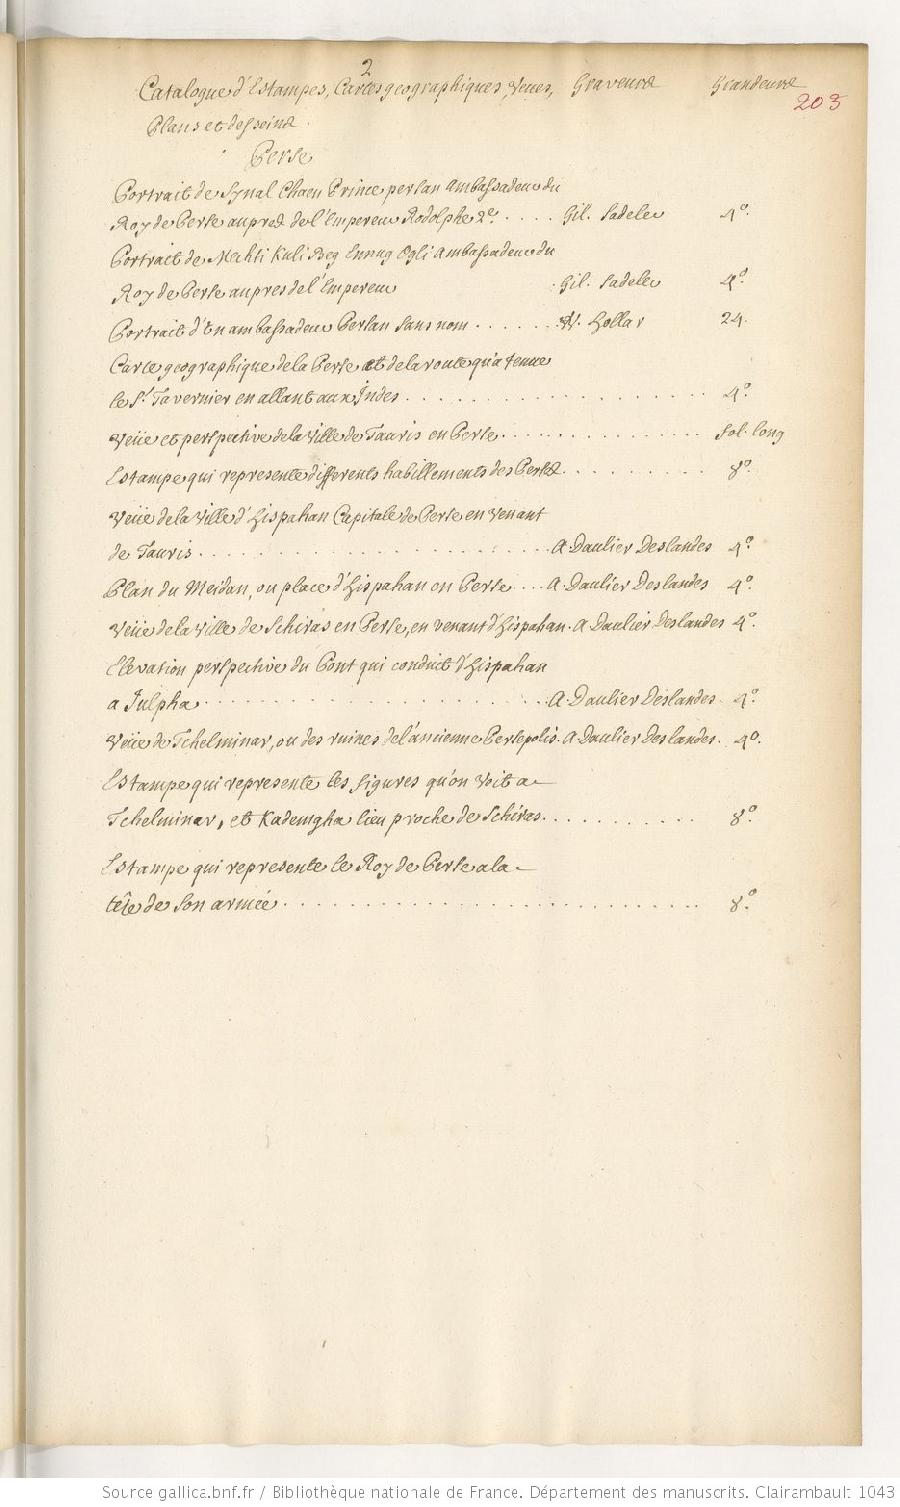 2
Catalogue d'Estampes, Cartes geographiques, Veues, Graveurs Grandeurs
203
Plans et desseins
Perse
Portrait de Synal Chaen Prince persan Ambassadeur du
Roy de Perse aupres de l'Empereur Rodolphe 2e. . . . . Gil. Sadeler 4º.
Portrait de Mechti Kuli Beg Ennug Ogli Ambassadeur du
Roy de Perse aupres de l'Empereur Gil. Sadeler 4º.
Portrait d'Un ambassadeur Persan sans nom . . . . . . W. Hollar 24.
Carte geographique de la Perse et de la route qu'a tenue
le Sr. Tavernier en allant aux Indes . . . . . . . . . . 4º.
Veüe et perspective de la Ville de Tauris en Perse . . . . . . . . . . fol. long
Estampe qui represente differents habillements des Perses . . . . . . . . 8º.
Veüe de la Ville d'Hispahan Capitale de Perse en venant
de Tauris . . . . . . . . . . A. Daulier Deslandes 4º.
Plan du Meidan, ou place d'Hispahan en Perse . . . A. Daulier Deslandes 4º.
Veüe de la Ville de Schiras en Perse, en venant d'Hispahan. A Daulier Deslandes 4º.
Elevation perspective du Pont qui conduit d'Hispahan
a Julpha . . . . . . . . . . A. Daulier Deslandes 4º.
Veüe de Tchelminar, ou des ruines de l'ancienne Persepolis. A Daulier Deslandes. 4º.
Estampe qui represente les figures qu'on voit a
Tchelminar, et Kademgha lieu proche de Schiras . . . . . . . . . 8º.
Estampe qui represente le Roy de Perse a la
tête de son armée . . . . . . . . . . 8º.
Source gallica.bnf.fr / Bibliothèque nationale de France. Département des manuscrits. Clairambault 1043